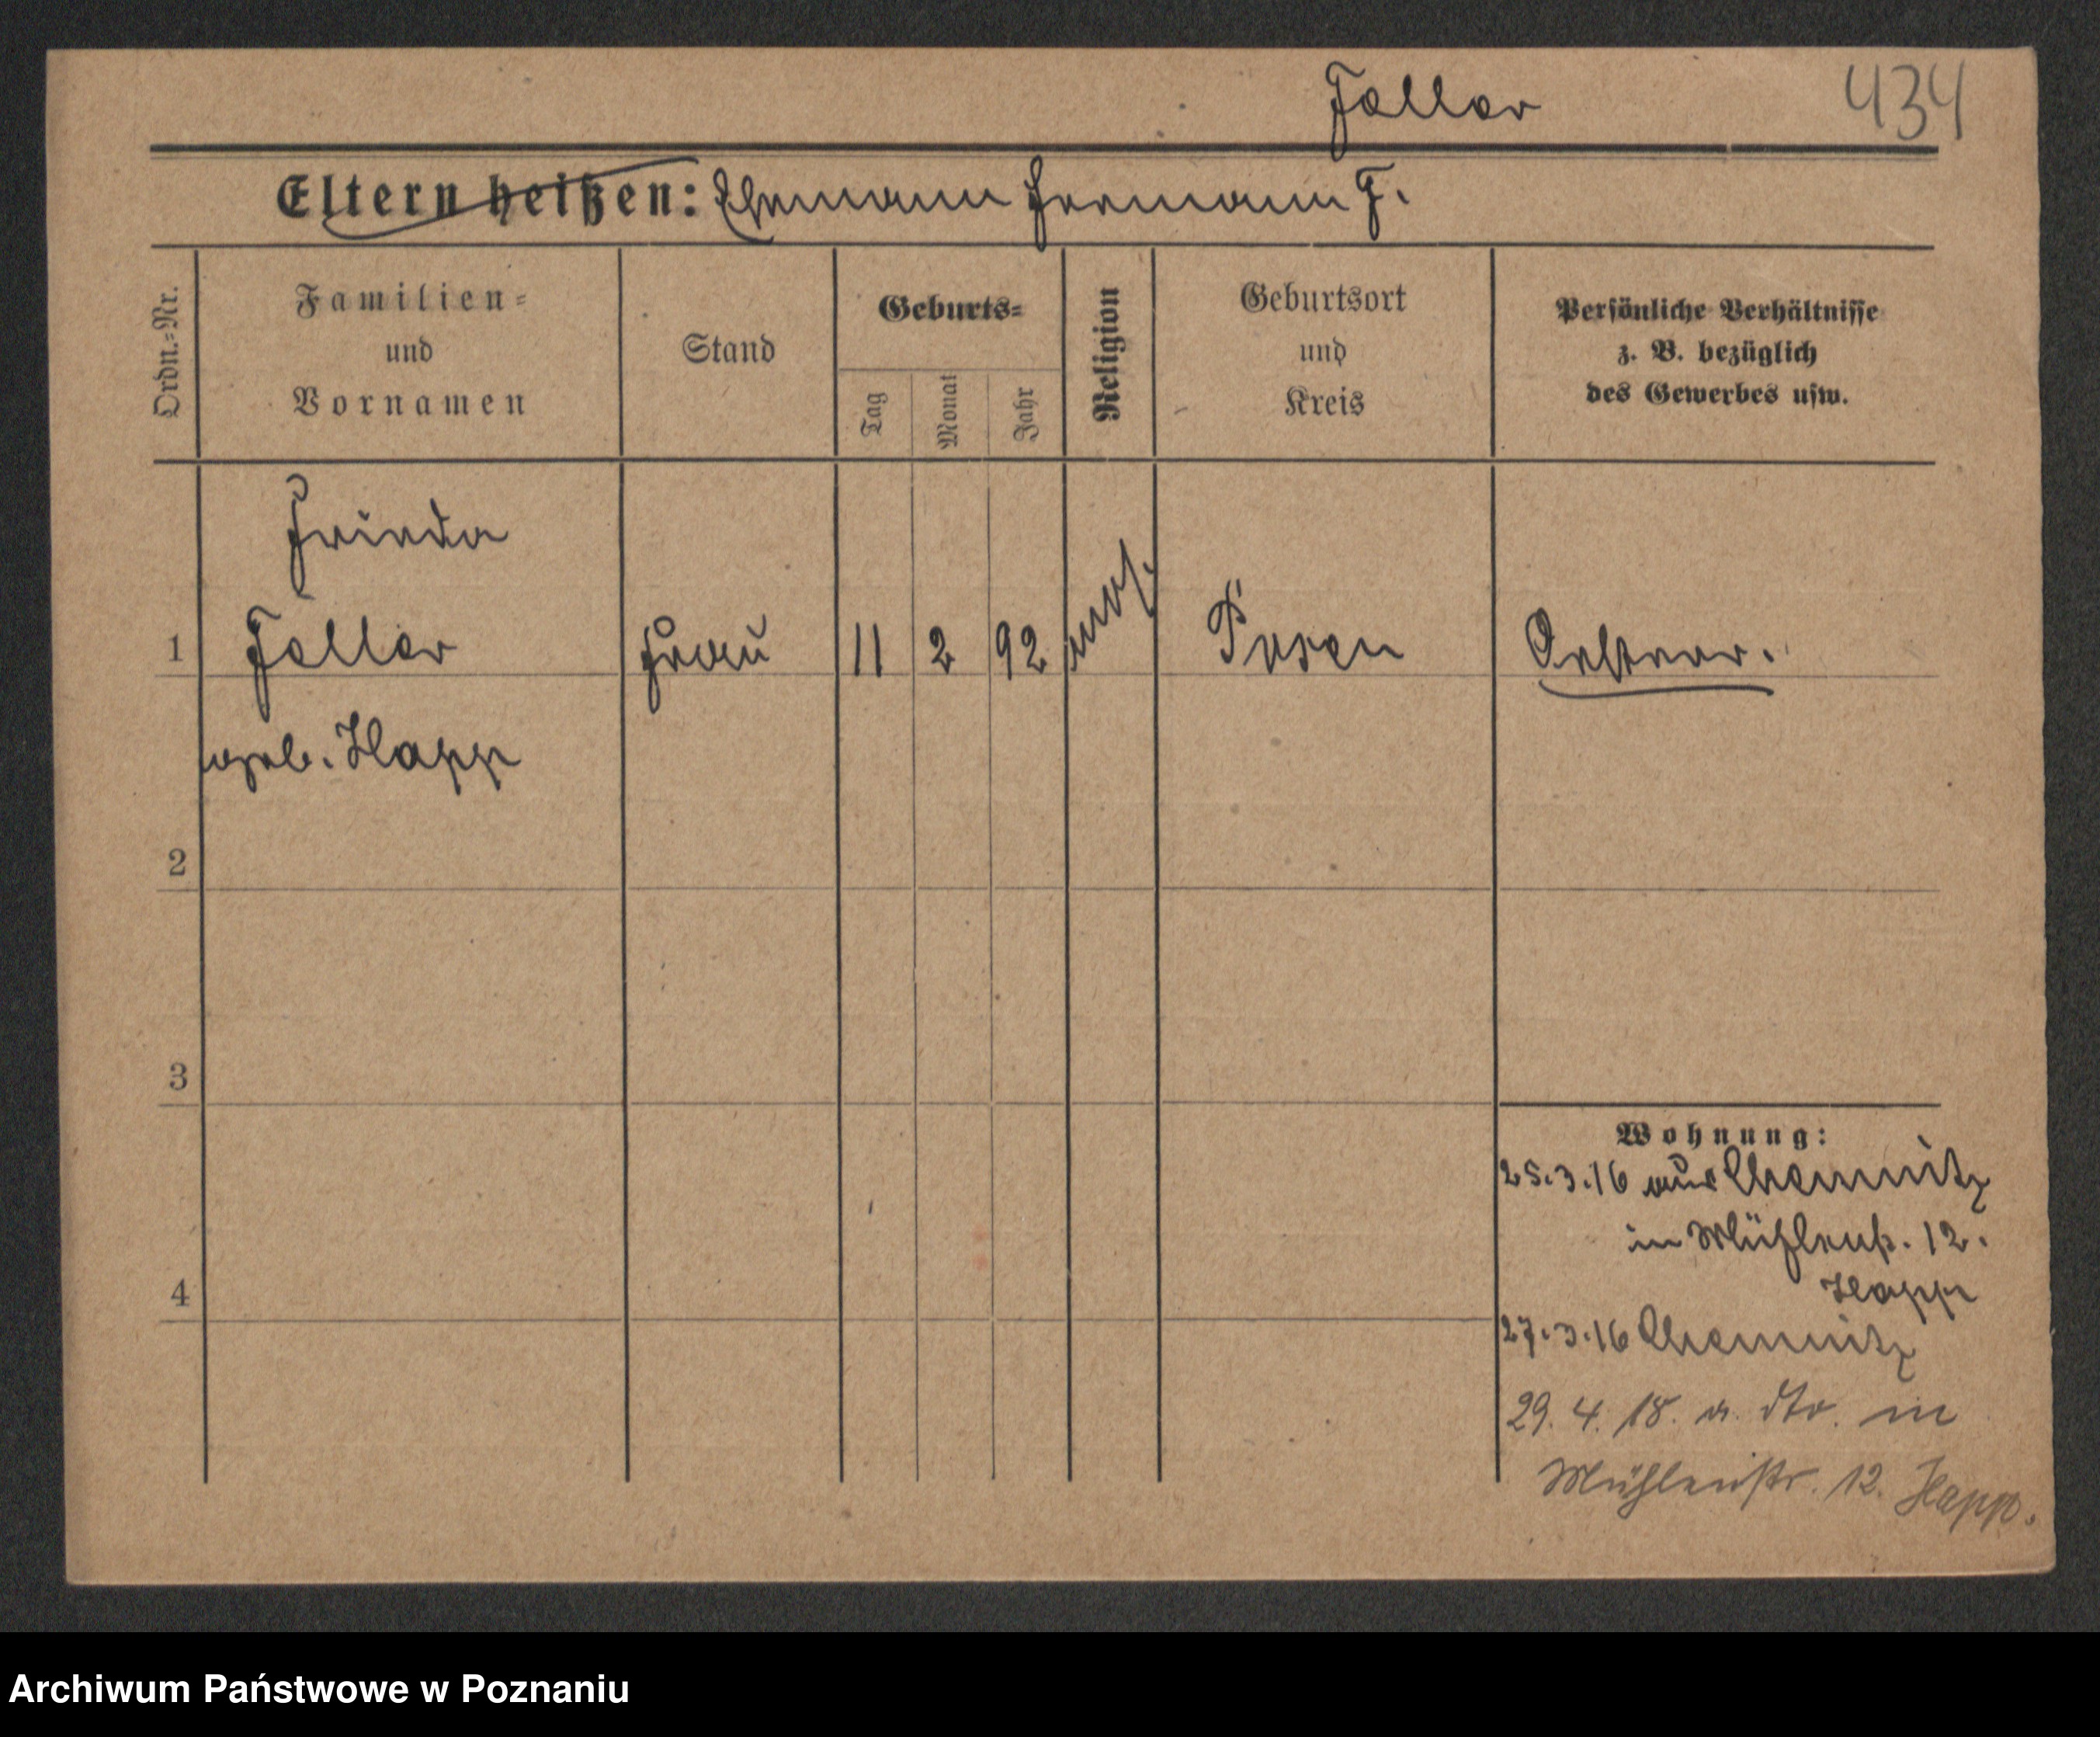 Feller 434
Eltern heißen: Ehemann Hermann F.
Ordn.=Nr.
Familien=
und
Vornamen
Stand
Geburts=
Tag
Monat
Jahr
Religion
Geburtsort
und
Kreis
Persönliche Verhältnisse
z. B. bezüglich
des Gewerbes usw.
Frieda
1 Feller Frau 11 2 92 Posen
geb. Happ
2
3
4
Wohnung:
25.3.16 aus Chemnitz
in Mühlenstr. 12.
Happ
27.3.16 Chemnitz
29. 4. 18. a. dto. in
Mühlenstr. 12. Happ.
Archiwum Państwowe w Poznaniu